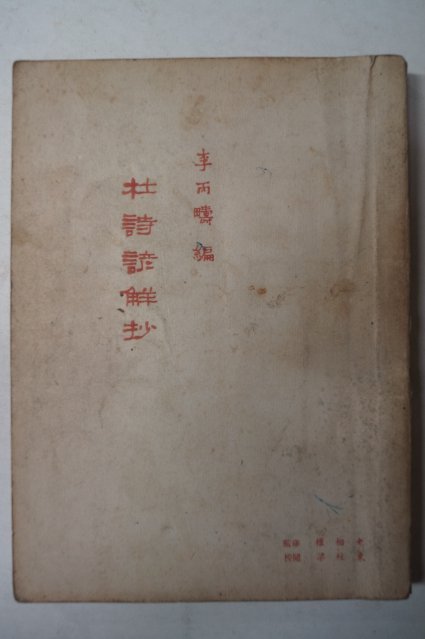 李丙疇 編
杜詩諺解抄